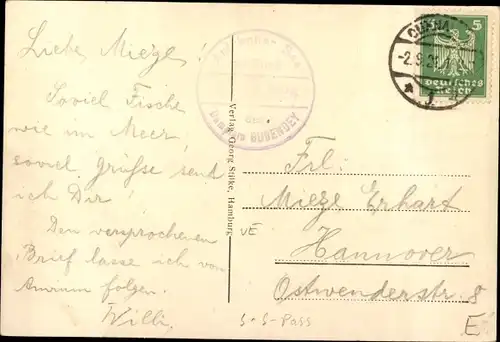 Liebe Mieze!
Soviel Fische
wie im Meer,
soviel Grüße send
ich Dir!
Den versprochenen
Brief lasse ich von
Amrum folgen.
Willi
Verlag Georg Stilke, Hamburg
Dampfers BUBENDEY
CUXHA
-2.9.2
5
Deutsches
Reich
Frl.
Mieze Erhart
VE
Hannover
Ostwenderstr. 8
S+S-Pass
E